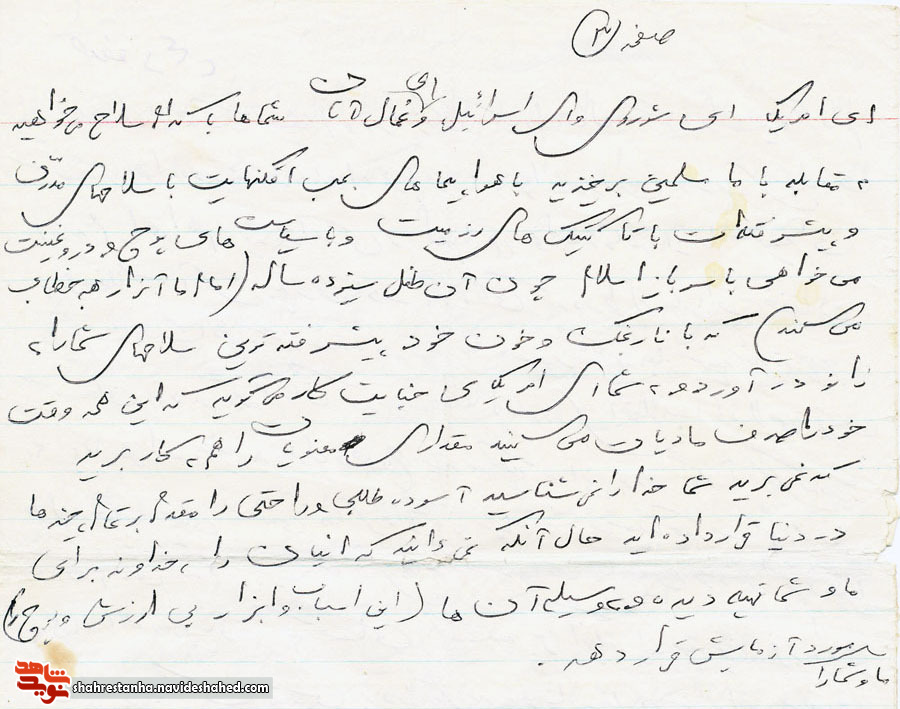 صفحه ۳
ای امریکا ای شوروی وای اسرائیل وای عُمال آنان شماها با که ام سلاح می‌خواهید
به مقابله با ما مسلمین برخیزید با هواپیماهای بمب افکنهایت با سلاحهای مدرن
و پیشرفته‌ات با تاکتیک های رزمیت و با سیاست های پوچ و دروغینت
می خواهی با سرباز اسلام چون آن طفل سیزده ساله (امام ما آنرا رهبر خطاب
می کند) که با نارنجک و خون خود پیشرفته ترین سلاحهای شما را به
زانو در آورد و به شما ای امریکای جنایت کار می گوید که این همه وقت
خود را صرف مادیات می کنید مقداری معنویات را هم به کار برید
که نمی برید شما خدا را نمی شناسید آسوده طلبی و راحتی را مقدم بر تمام چیزها
در دنیا قرار داده اید حال آنکه نمی دانید که انسان را خداوند برای
ما و شما تهیه دیده و بوسیله آن ها (این اسباب و ابزار بی ارزش و پوچ را)
ما و شما را مورد آزمایش قرار دهد.
نوید شاهد
shahrestanha.navideshahed.com